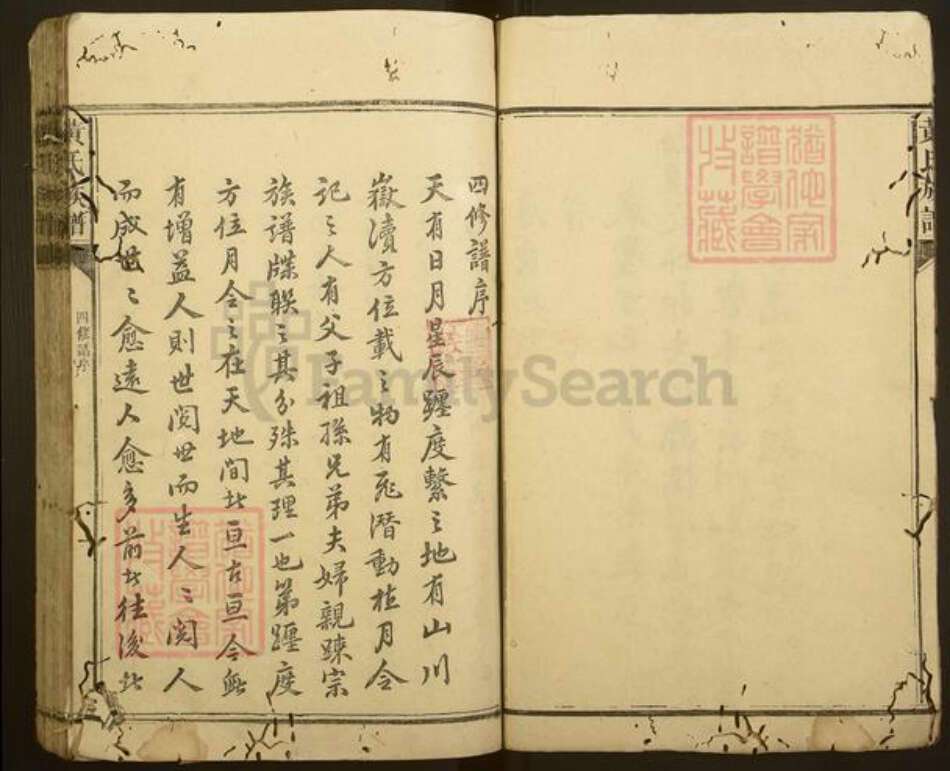 黃氏族譜
猶他家
譜學會
收藏
四修譜序
天有日月星辰躔度繫之地有山川
嶽瀆方位載之物有飛潛動植月令
記之人有父子祖孫兄弟夫婦親疎宗
族譜牒聯之其分殊其理一也第躔度
方位月令之在天地間此亘古亘今無
有增益人則世閱世而生人〻閱人
而成世〻愈遠人愈多前此往後此
猶他家
譜學會
收藏
黃氏族譜
四修譜序
FamilySearch